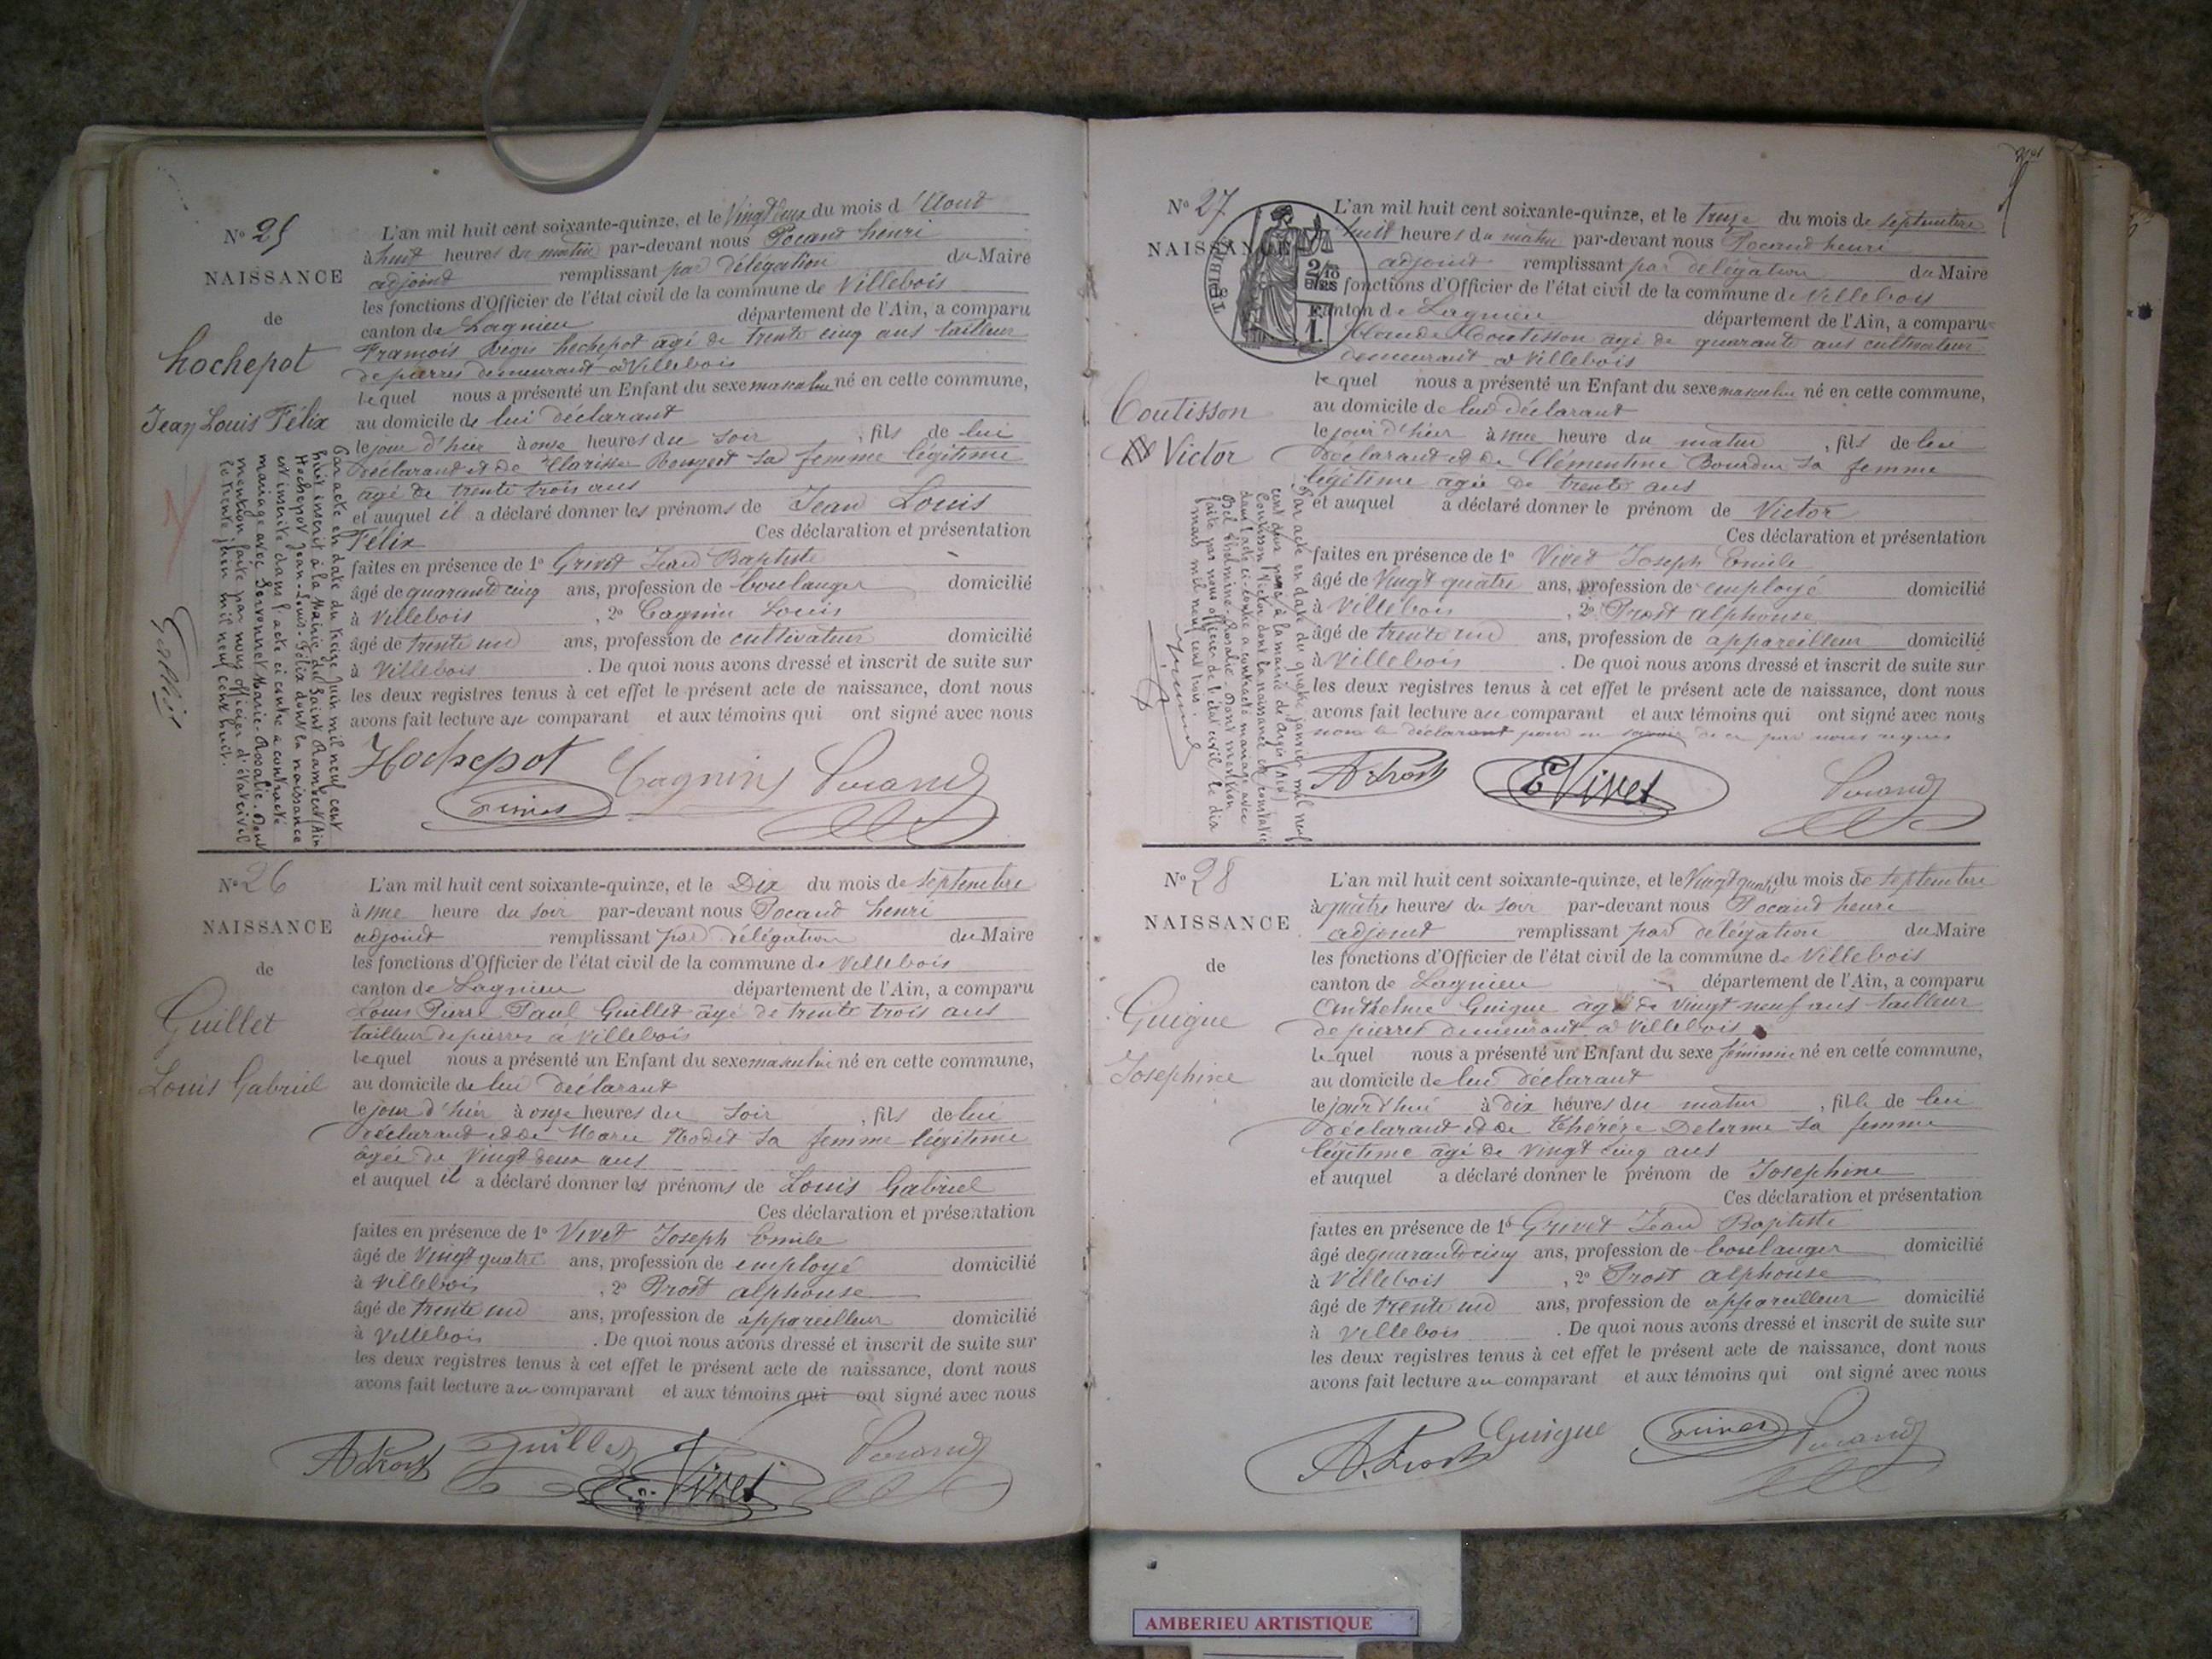 N° 25
NAISSANCE
de
hochepot
Jean Louis Félix
L'an mil huit cent soixante-quinze, et le Vingt deux du mois d'Aout
à huit heures du matin par-devant nous Pocand henri
adjoint remplissant par délégation du Maire
les fonctions d'Officier de l'état civil de la commune de Villebois
canton de Lagnieu département de l'Ain, a comparu
François Régis hochepot agé de trente cinq ans tailleur
de pierres demeurant à Villebois
lequel nous a présenté un Enfant du sexe masculin né en cette commune,
au domicile de lui déclarant
le jour d'hier à onze heures du soir, fils de lui
déclarant et de Clarisse Bouget sa femme légitime
agé de trente trois ans
et auquel il a déclaré donner les prénoms de Jean Louis
Félix Ces déclaration et présentation
faites en présence de 1° Grivet Jean Baptiste
âgé de quarante cinq ans, profession de boulanger domicilié
à Villebois, 2° Cagnin Louis
âgé de trente un ans, profession de cultivateur domicilié
à Villebois. De quoi nous avons dressé et inscrit de suite sur
les deux registres tenus à cet effet le présent acte de naissance, dont nous
avons fait lecture au comparant et aux témoins qui ont signé avec nous
Hochepot Cagnin Pocand
Grivet
Par acte en date du treize Juin mil neuf cent
huit inscrit à la Mairie de Saint Rambert (Ain
Hochepot Jean-Louis-Félix dont la naissance
est inscrite dans l'acte ci contre a contracté
mariage avec Servonnet Marie-Rosalie. Dont
mention faite par nous officier d'état civil
le trente Juin mil neuf cent huit.
N° 26
NAISSANCE
de
Guillet
Louis Gabriel
L'an mil huit cent soixante-quinze, et le Dix du mois de septembre
à une heure du soir par-devant nous Pocand henri
adjoint remplissant par délégation du Maire
les fonctions d'Officier de l'état civil de la commune de Villebois
canton de Lagnieu département de l'Ain, a comparu
Louis Pierre Paul Guillet âgé de trente trois ans
tailleur de pierres à Villebois
lequel nous a présenté un Enfant du sexe masculin né en cette commune,
au domicile de lui déclarant
le jour d'hier à onze heures du soir, fils de lui
déclarant et de Marie Rodet sa femme légitime
âgée de Vingt deux ans
et auquel il a déclaré donner les prénoms de Louis Gabriel
Ces déclaration et présentation
faites en présence de 1° Vivet Joseph Emile
âgé de Vingt quatre ans, profession de employé domicilié
à Villebois, 2° Prost alphonse
âgé de trente un ans, profession de appareilleur domicilié
à Villebois. De quoi nous avons dressé et inscrit de suite sur
les deux registres tenus à cet effet le présent acte de naissance, dont nous
avons fait lecture au comparant et aux témoins qui ont signé avec nous
A. Prost Guillet E. Vivet Pocand
N° 27
NAISSANCE
Coutisson
Victor
TIMBRE
2/10 EN SUS
1 F
L'an mil huit cent soixante-quinze, et le treize du mois de septembre
huit heures du matin par-devant nous Pocand henri
adjoint remplissant par délégation du Maire
fonctions d'Officier de l'état civil de la commune de Villebois
canton de Lagnieu département de l'Ain, a comparu
Claude Coutisson agé de quarante ans cultivateur
demeurant à Villebois
lequel nous a présenté un Enfant du sexe masculin né en cette commune,
au domicile de lui déclarant
le jour d'hier à une heure du matin, fils de lui
déclarant et de Clémentine Bourdin sa femme
légitime agée de trente ans
et auquel a déclaré donner le prénom de Victor
Ces déclaration et présentation
faites en présence de 1° Vivet Joseph Emile
âgé de Vingt quatre ans, profession de employé domicilié
à Villebois, 2° Prost alphonse
âgé de trente un ans, profession de appareilleur domicilié
à Villebois. De quoi nous avons dressé et inscrit de suite sur
les deux registres tenus à cet effet le présent acte de naissance, dont nous
avons fait lecture au comparant et aux témoins qui ont signé avec nous
non le déclarant pour ne savoir de ce par nous requis
A. Prost E. Vivet Pocand
Par acte en date du quatre janvier mil neuf
cent deux passé à la mairie d'Argis (Ain)
Coutisson Victor dont la naissance est constatée
dans l'acte ci-contre a contracté mariage avec
Rosalie. Dont mention
faite par nous officier de l'état civil le dix
mars mil neuf cent trois.
N° 28
NAISSANCE
de
Guigue
Josephine
L'an mil huit cent soixante-quinze, et le Vingt quatre du mois de septembre
à quatre heures du soir par-devant nous Pocand henri
adjoint remplissant par délégation du Maire
les fonctions d'Officier de l'état civil de la commune de Villebois
canton de Lagnieu département de l'Ain, a comparu
Anthelme Guigue agé de Vingt neuf ans tailleur
de pierres demeurant à Villebois
lequel nous a présenté un Enfant du sexe féminin né en cette commune,
au domicile de lui déclarant
le jourd'hui à dix heures du matin, fille de lui
déclarant et de Thérèze Delorme sa femme
légitime agé de Vingt cinq ans
et auquel a déclaré donner le prénom de Josephine
Ces déclaration et présentation
faites en présence de 1° Grivet Jean Baptiste
âgé de quarante cinq ans, profession de boulanger domicilié
à Villebois, 2° Prost alphonse
âgé de trente un ans, profession de appareilleur domicilié
à Villebois. De quoi nous avons dressé et inscrit de suite sur
les deux registres tenus à cet effet le présent acte de naissance, dont nous
avons fait lecture au comparant et aux témoins qui ont signé avec nous
A. Prost Guigue Grivet Pocand
AMBERIEU ARTISTIQUE